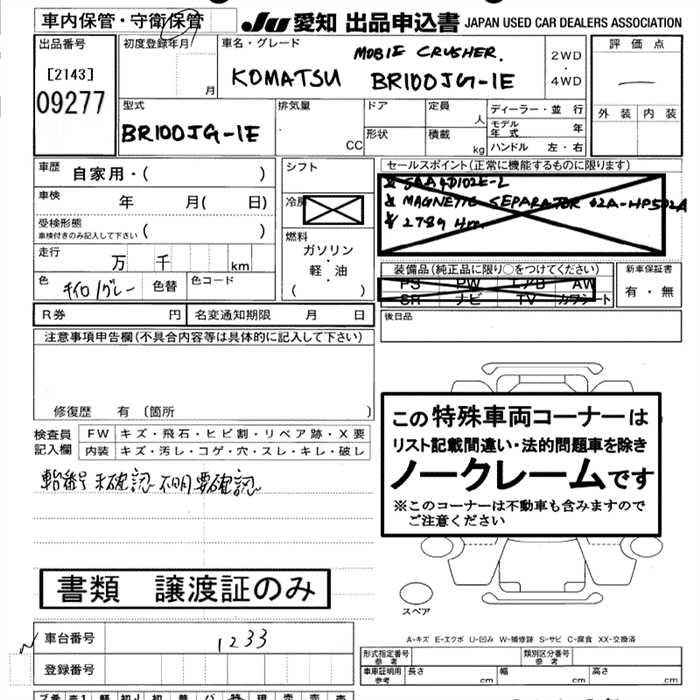 車内保管・守衛保管
Ju 愛知 出品申込書 JAPAN USED CAR DEALERS ASSOCIATION
出品番号
[2143]
09277
初度登録年月
月
車名・グレード
MOBIE CRUSHER.
KOMATSU BR100JG-1E
2WD
・
4WD
評価点
外装 内装
型式
BR100JG-1E
排気量
CC
ドア
形状
定員
人
積載
kg
ディーラー・並行
モデル年式 年
ハンドル 左・右
車歴
自家用・( )
車検
年 月( 日)
受検形態
車検付きのみ記入して下さい ( )
走行
万 千 km
色
色替
色コード
シフト
冷房
燃料
ガソリン
・
軽・油
( )
セールスポイント(正常に機能するものに限ります)
※ SAA4D102E-2
※ MAGNETIC SEPARATOR 02A-HP502A
※ 2789 Hm
装備品(純正品に限り○をつけてください)
PS PW エアB AW
SR ナビ TV カワシート
新車保証書
有・無
R券 円
名変通知期限 月 日
後日品
注意事項申告欄(不具合内容等は具体的に記入して下さい)
修復歴 有 〔箇所 〕
検査員
記入欄
FW キズ・飛石・ヒビ割・リペア跡・X要
内装 キズ・汚レ・コゲ・穴・スレ・キレ・破レ
未確認 不明 要確認
この特殊車両コーナーは
リスト記載間違い・法的問題車を除き
ノークレームです
※このコーナーは不動車も含みますので
ご注意ください
書類 譲渡証のみ
スペア
車台番号
1233
登録番号
A-キズ E-エクボ U-凹み W-補修跡 S-サビ C-腐食 XX-交換済
形式指定番号
参考
類別区分番号
参考
車庫証明用
参考
長さ cm 幅 cm 高さ cm